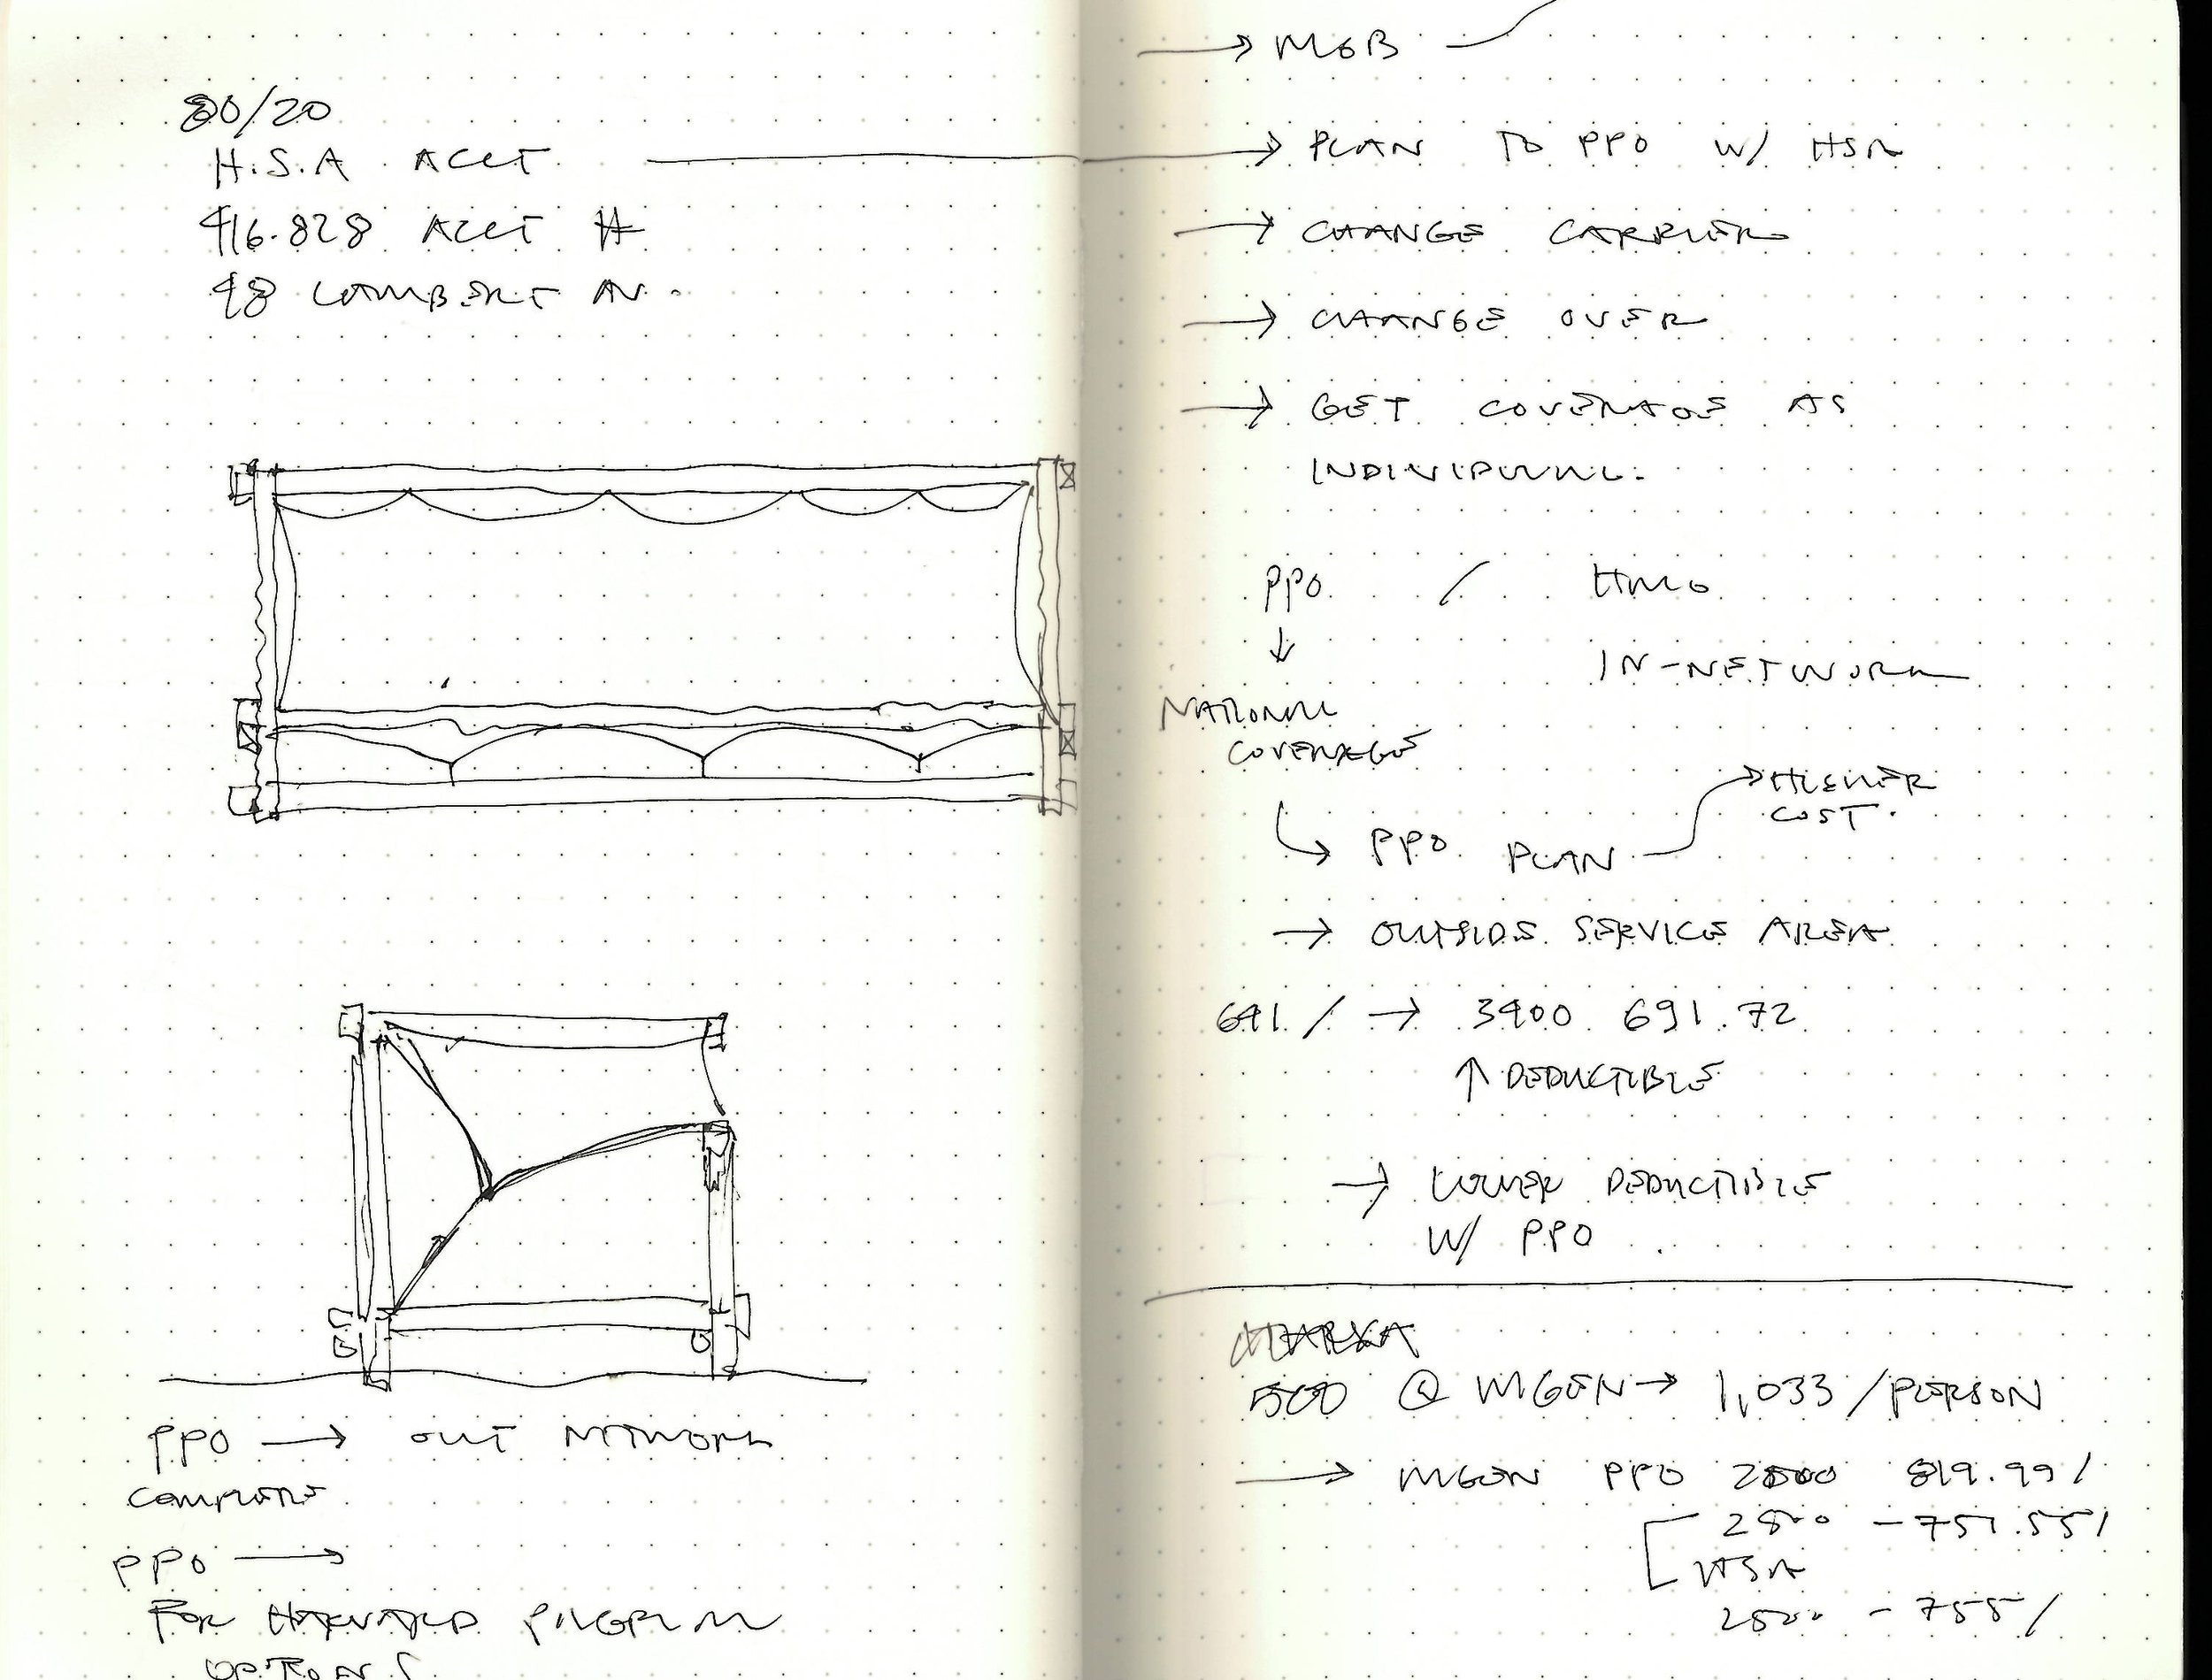 80/20
H.S.A ACCT
416.828 ACCT #
48 LAMBERT AV.
PPO → OUT NETWORK
PPO →
FOR HARVARD PILGRIM
OPTIONS
→ MGB
→ PLAN TO PPO W/ HSA
→ CHANGE CARRIER
→ CHANGE OVER
→ GET COVERAGE AS
INDIVIDUAL.
PPO / HMO
↓
IN-NETWORK
NATIONAL
COVERAGE
→ HIGHER
COST.
→ PPO PLAN
→ OUTSIDE SERVICE AREA
691 / → 3400 691.72
↑ DEDUCTIBLE
→ LOWER DEDUCTIBLE
W/ PPO
500 @ MGEN → 1,033 /PERSON
→ MGEN PPO 2500 819.99 /
2800 - 751.55 /
HSA
2500 - 755 /